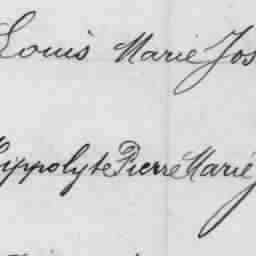 Louis Marie Jos
Hippolyte Pierre Marie J